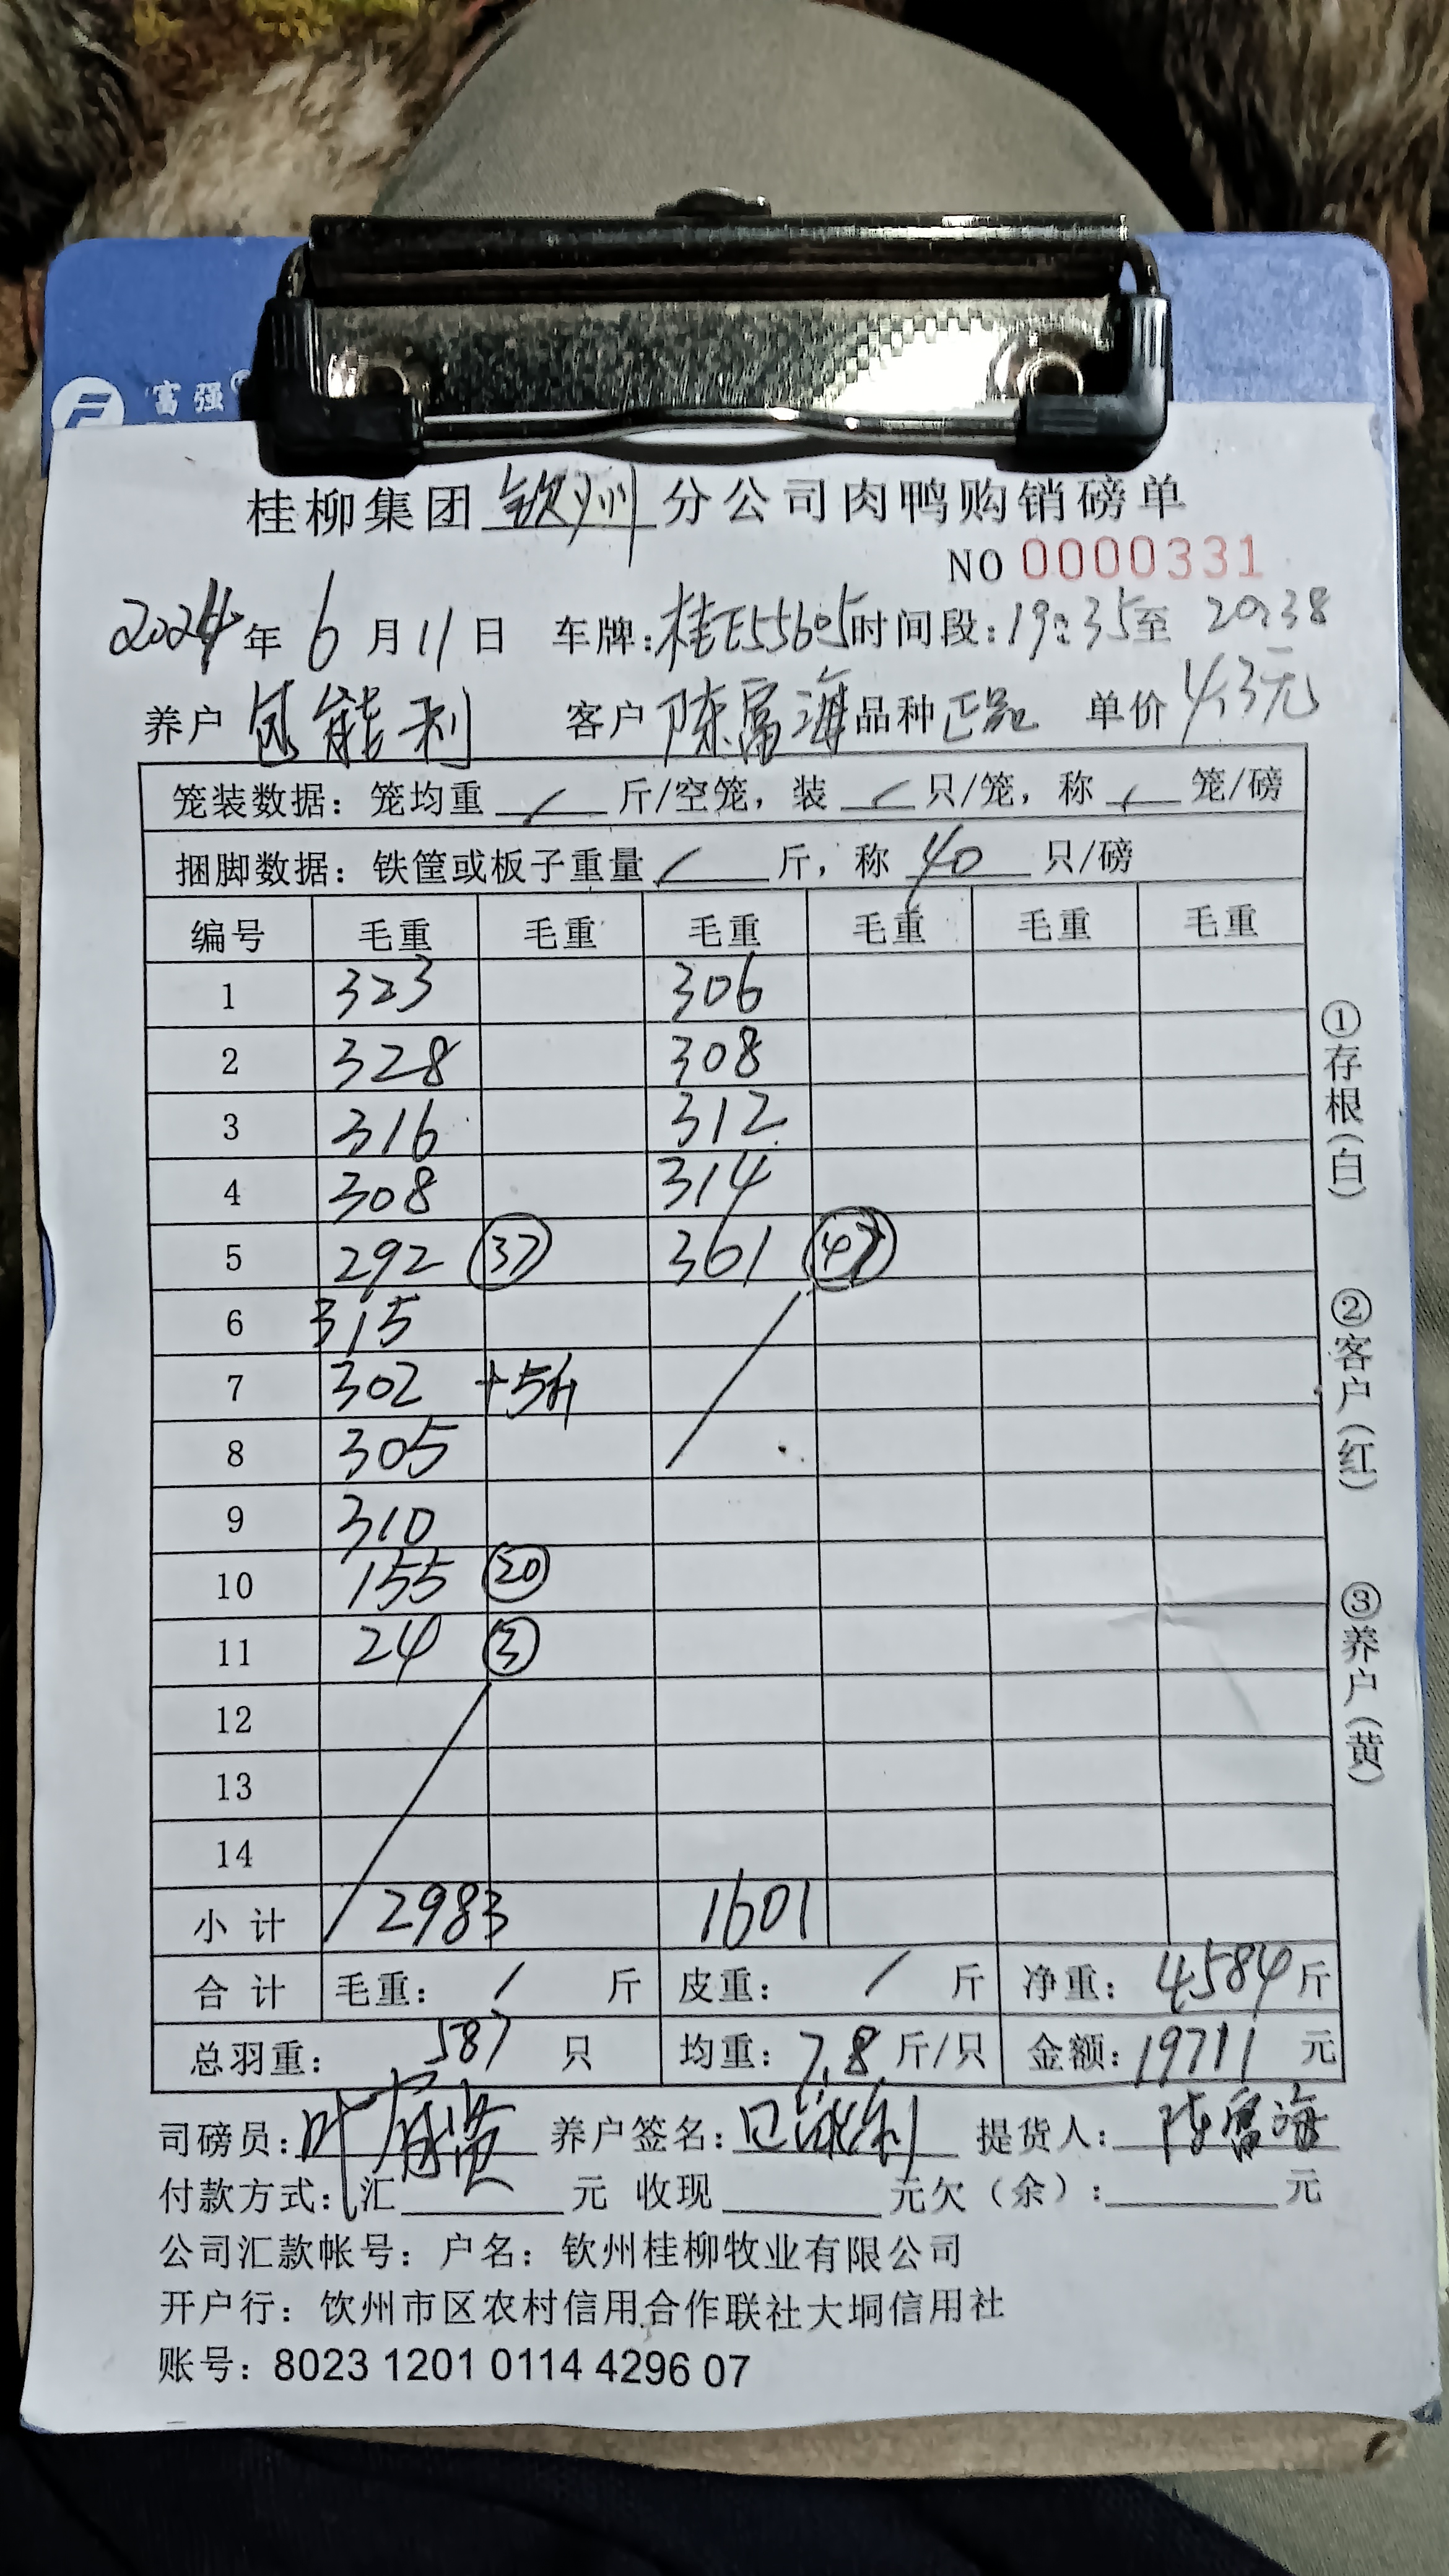 富强®
桂柳集团 钦州 分公司肉鸭购销磅单
NO 0000331
2024年 6 月 11 日 车牌:桂E55605时间段:19:35至 20:38
养户 能利 客户 陈富海 品种 正品 单价 4.3元
笼装数据: 笼均重 / 斤/空笼, 装 / 只/笼, 称 / 笼/磅
捆脚数据: 铁筐或板子重量 / 斤, 称 40 只/磅
编号 毛重 毛重 毛重 毛重 毛重 毛重
1 323 306
2 328 308
3 316 312
4 308 314
5 292 37 361 47
6 315
7 302 +5斤
8 305
9 310
10 155 20
11 24 3
12
13
14
小计 2983 1601
合计 毛重: / 斤 皮重: / 斤 净重: 4584斤
总羽重: 587 只 均重: 7.8 斤/只 金额: 19711 元
司磅员: 叶 养户签名: 能利 提货人: 陈富海
付款方式: 汇 元 收现 元欠(余): 元
公司汇款帐号: 户名: 钦州桂柳牧业有限公司
开户行: 钦州市区农村信用合作联社大垌信用社
账号: 8023 1201 0114 4296 07
①存根(白)
②客户(红)
③养户(黄)